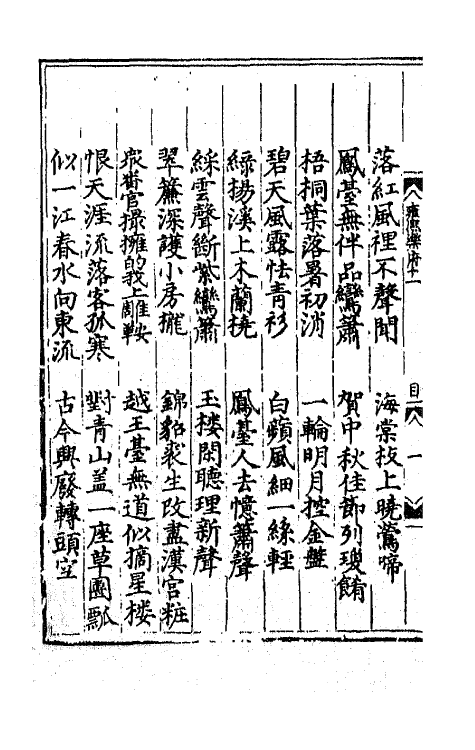 雍熈樂府十一
目
一
落紅風裡不聲聞　海棠枝上曉鶯啼
鳳臺無伴品鸞簫　賀中秋佳節列瓊餚
梧桐葉落暑初消　一輪明月控金盤
碧天風露怯青衫　白蘋風細一絲輕
綠楊溪上木蘭橈　鳳臺人去憶簫聲
綵雲聲斷紫鸞簫　玉楼閑聽理新聲
翠簾深護小房櫳　錦貂裘生改盡漢宮粧
衆番官撮擁的我上雕鞍　越王臺無道似摘星楼
恨天涯流落客孤寒　對青山盖一座草團瓢
似一江春水向東流　古今興廢轉頭空